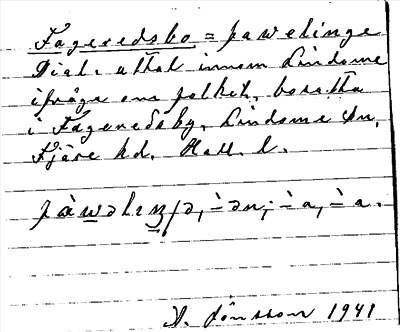 Fageredsbo = pawelinge
Dial. uttal innom Lindome
ifråga om folket, bosatta
i Fageredsby, Lindome sn,
Fjäre hd, Hall. l.
A. Jönsson 1941